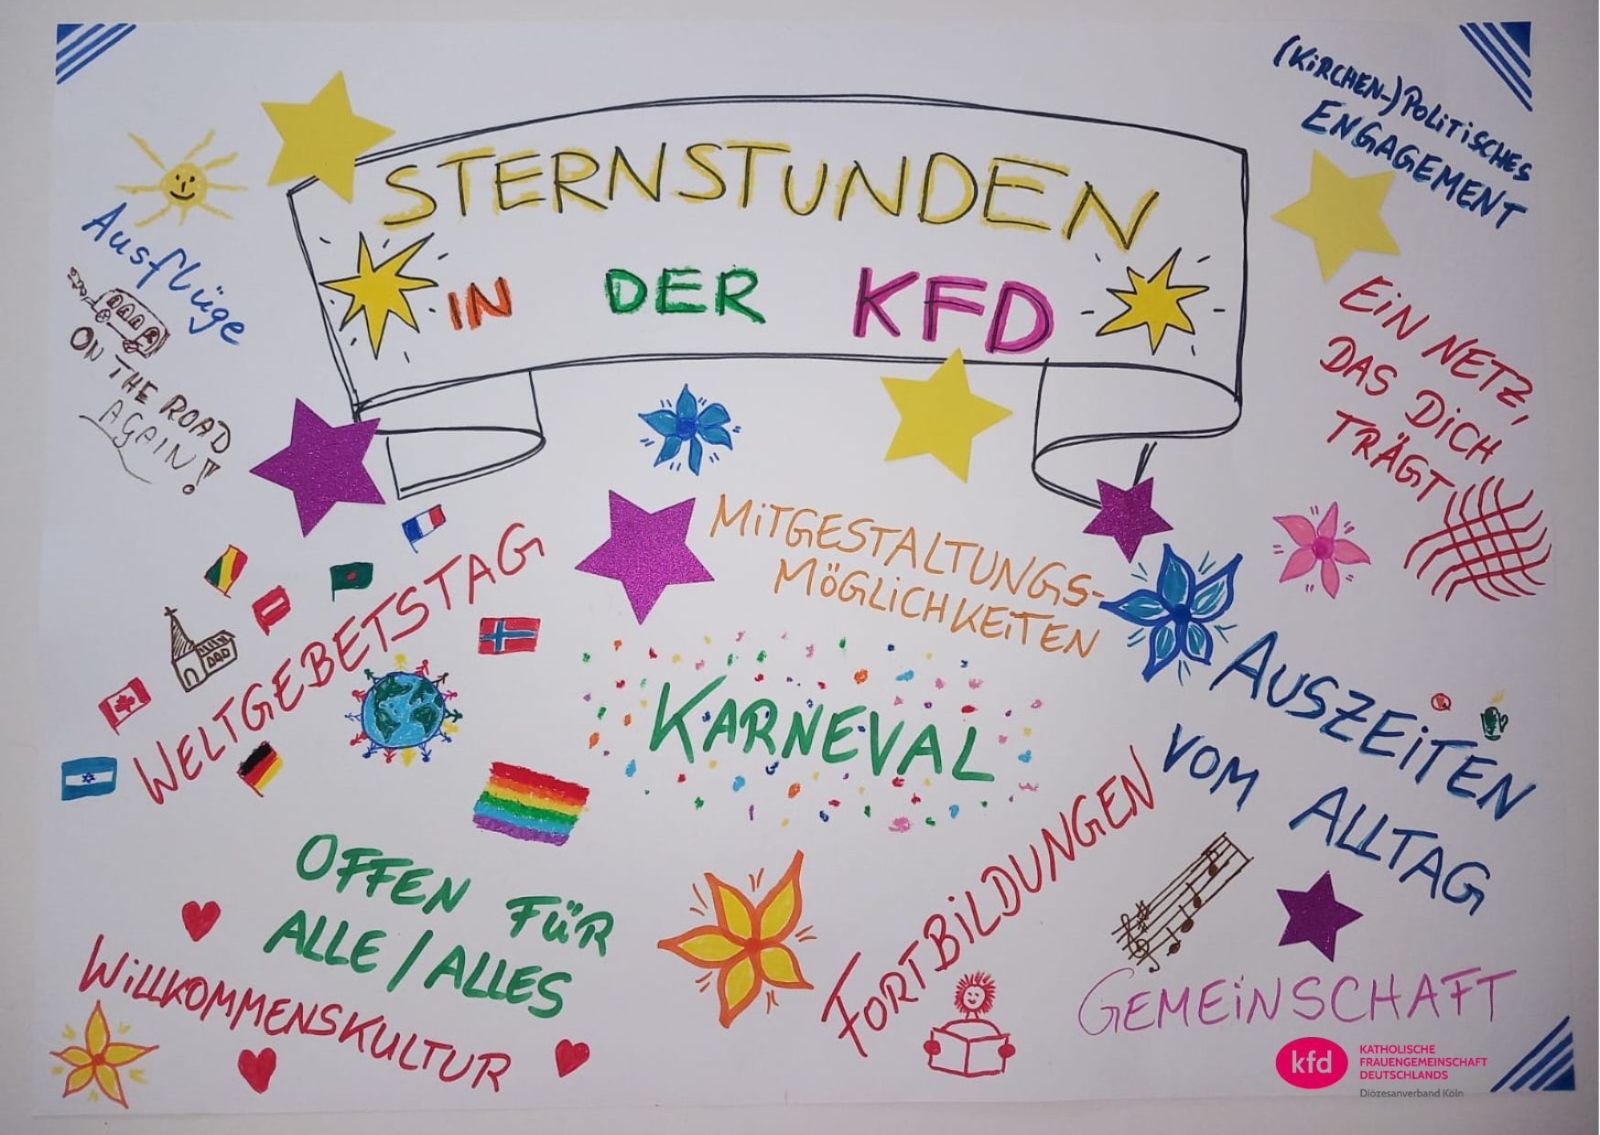 STERNSTUNDEN
IN DER KFD
(KIRCHEN-)POLITISCHES
ENGAGEMENT
Ausflüge
ON THE ROAD
AGAIN!
EIN NETZ,
DAS DICH
TRÄGT
MITGESTALTUNGS-
MÖGLICHKEITEN
WELTGEBETSTAG
KARNEVAL
AUSZEITEN
VOM ALLTAG
OFFEN FÜR
ALLE/ALLES
WILLKOMMENSKULTUR
FORTBILDUNGEN
GEMEINSCHAFT
kfd
KATHOLISCHE
FRAUENGEMEINSCHAFT
DEUTSCHLANDS
Diözesanverband Köln